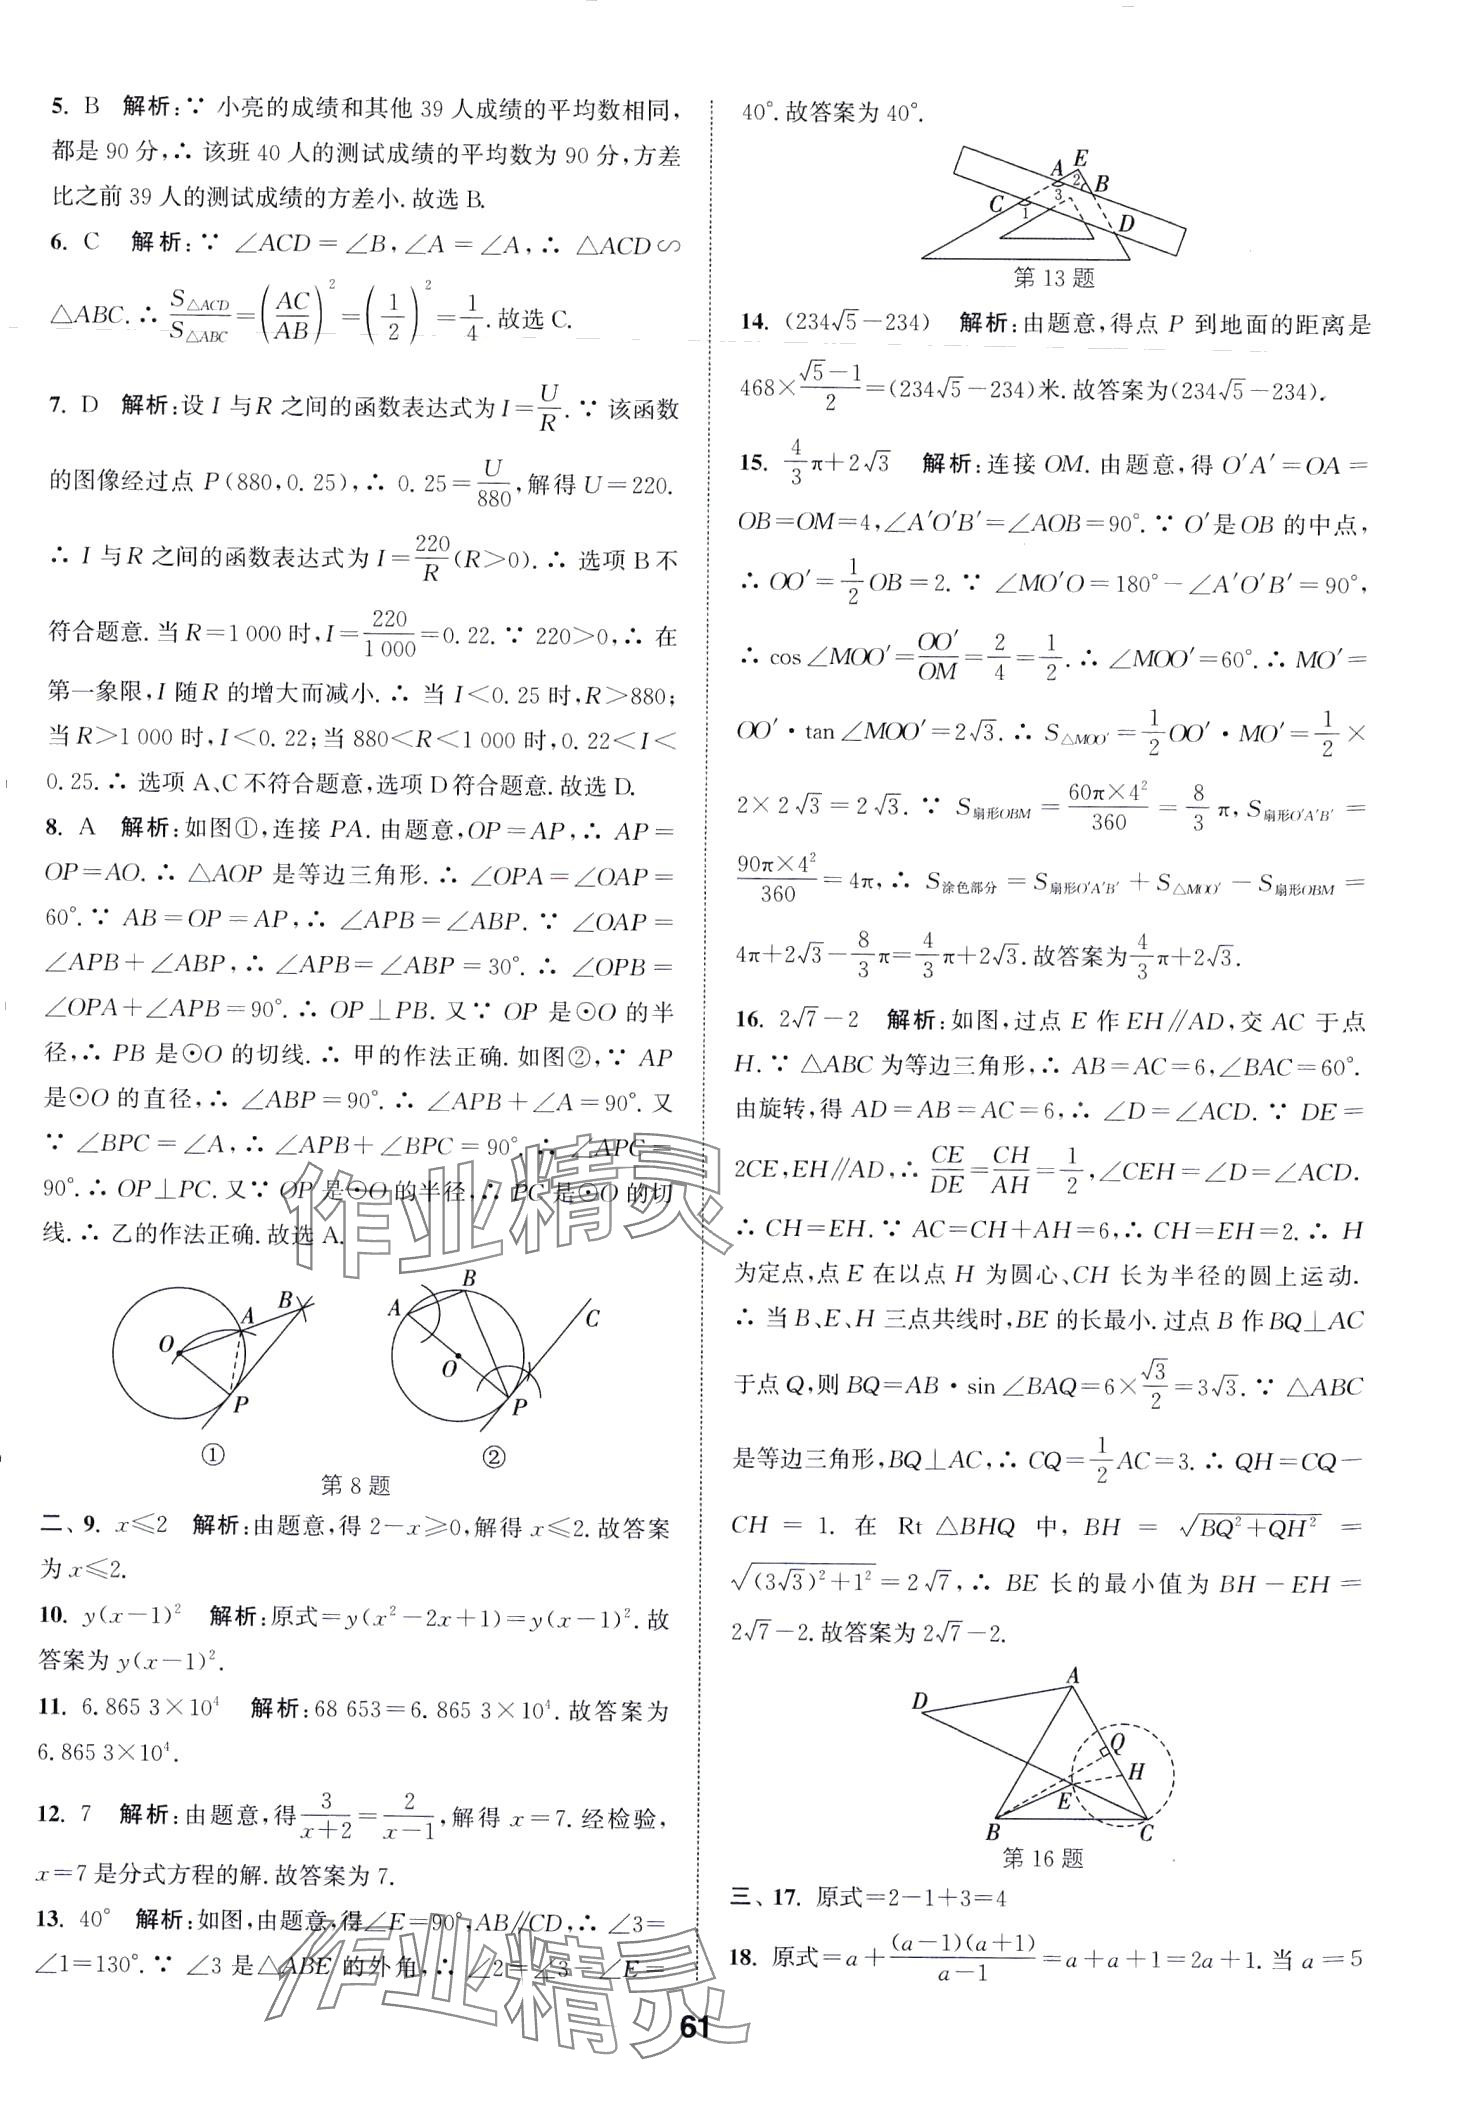 5. B 解析:∵ 小亮的成绩和其他 39 人成绩的平均数相同,
都是 90 分,∴ 该班 40 人的测试成绩的平均数为 90 分,方差
比之前 39 人的测试成绩的方差小.故选 B.
6. C 解析:∵ ∠ACD=∠B,∠A=∠A,∴ △ACD∽
△ABC.∴ S△ACD/S△ABC=(AC/AB)²=(1/2)²=1/4.故选 C.
7. D 解析:设 I 与 R 之间的函数表达式为 I=U/R.∵ 该函数
的图像经过点 P(880,0.25),∴ 0.25=U/880,解得 U=220.
∴ I 与 R 之间的函数表达式为 I=220/R(R>0).∴ 选项 B 不
符合题意.当 R=1 000 时,I=220/1 000=0.22.∵ 220>0,∴ 在
第一象限,I 随 R 的增大而减小.∴ 当 I<0.25 时,R>880;
当 R>1 000 时,I<0.22;当 880<R<1 000 时,0.22<I<
0.25.∴ 选项 A、C 不符合题意,选项 D 符合题意.故选 D.
8. A 解析:如图①,连接 PA.由题意,OP=AP,∴ AP=
OP=AO.∴ △AOP 是等边三角形.∴ ∠OPA=∠OAP=
60°.∵ AB=OP=AP,∴ ∠APB=∠ABP.∵ ∠OAP=
∠APB+∠ABP,∴ ∠APB=∠ABP=30°.∴ ∠OPB=
∠OPA+∠APB=90°.∴ OP⊥PB.又∵ OP 是⊙O 的半
径,∴ PB 是⊙O 的切线.∴ 甲的作法正确.如图②,∵ AP
是⊙O 的直径,∴ ∠ABP=90°.∴ ∠APB+∠A=90°.又
∵ ∠BPC=∠A,∴ ∠APB+∠BPC=90°.∴ ∠APC=
90°.∴ OP⊥PC.又∵ OP 是⊙O 的半径,∴ PC 是⊙O 的切
线.∴ 乙的作法正确.故选 A.
A B O P
①
A B C O P
②
第 8 题
二、9. x≤2 解析:由题意,得 2-x≥0,解得 x≤2.故答案
为 x≤2.
10. y(x-1)² 解析:原式=y(x²-2x+1)=y(x-1)².故
答案为 y(x-1)².
11. 6.865 3×10⁴ 解析:68 653=6.865 3×10⁴.故答案为
6.865 3×10⁴.
12. 7 解析:由题意,得3/(x+2)=2/(x-1),解得 x=7.经检验,
x=7 是分式方程的解.故答案为 7.
13. 40° 解析:如图,由题意,得∠E=90°,AB∥CD,∴ ∠3=
∠1=130°.∵ ∠3 是△ABE 的外角,∴ ∠2=∠3-∠E=
40°.故答案为 40°.
A E 2 B 3 C 1 D
第 13 题
14. (234√5-234) 解析:由题意,得点 P 到地面的距离是
468×(√5-1)/2=(234√5-234)米.故答案为(234√5-234).
15. 4/3π+2√3 解析:连接 OM.由题意,得 O′A′=OA=
OB=OM=4,∠A′O′B′=∠AOB=90°.∵ O′是 OB 的中点,
∴ OO′=1/2OB=2.∵ ∠MO′O=180°-∠A′O′B′=90°,
∴ cos∠MOO′=OO′/OM=2/4=1/2.∴ ∠MOO′=60°.∴ MO′=
OO′·tan∠MOO′=2√3.∴ S△MOO′=1/2OO′·MO′=1/2×
2×2√3=2√3.∵ S扇形OBM=60π×4²/360=8/3π,S扇形O′A′B′=
90π×4²/360=4π,∴ S涂色部分=S扇形O′A′B′+S△MOO′-S扇形OBM=
4π+2√3-8/3π=4/3π+2√3.故答案为4/3π+2√3.
16. 2√7-2 解析:如图,过点 E 作 EH∥AD,交 AC 于点
H.∵ △ABC 为等边三角形,∴ AB=AC=6,∠BAC=60°.
由旋转,得 AD=AB=AC=6,∴ ∠D=∠ACD.∵ DE=
2CE,EH∥AD,∴ CE/DE=CH/AH=1/2,∠CEH=∠D=∠ACD.
∴ CH=EH.∵ AC=CH+AH=6,∴ CH=EH=2.∴ H
为定点,点 E 在以点 H 为圆心、CH 长为半径的圆上运动.
∴ 当 B、E、H 三点共线时,BE 的长最小.过点 B 作 BQ⊥AC
于点 Q,则 BQ=AB·sin∠BAQ=6×√3/2=3√3.∵ △ABC
是等边三角形,BQ⊥AC,∴ CQ=1/2AC=3.∴ QH=CQ-
CH=1.在 Rt△BHQ 中,BH=√(BQ²+QH²)=
√((3√3)²+1²)=2√7,∴ BE 长的最小值为 BH-EH=
2√7-2.故答案为 2√7-2.
A D Q H E B C
第 16 题
三、17. 原式=2-1+3=4
18. 原式=a+(a-1)(a+1)/(a-1)=a+a+1=2a+1.当 a=5
61
作业精灵
作业精灵